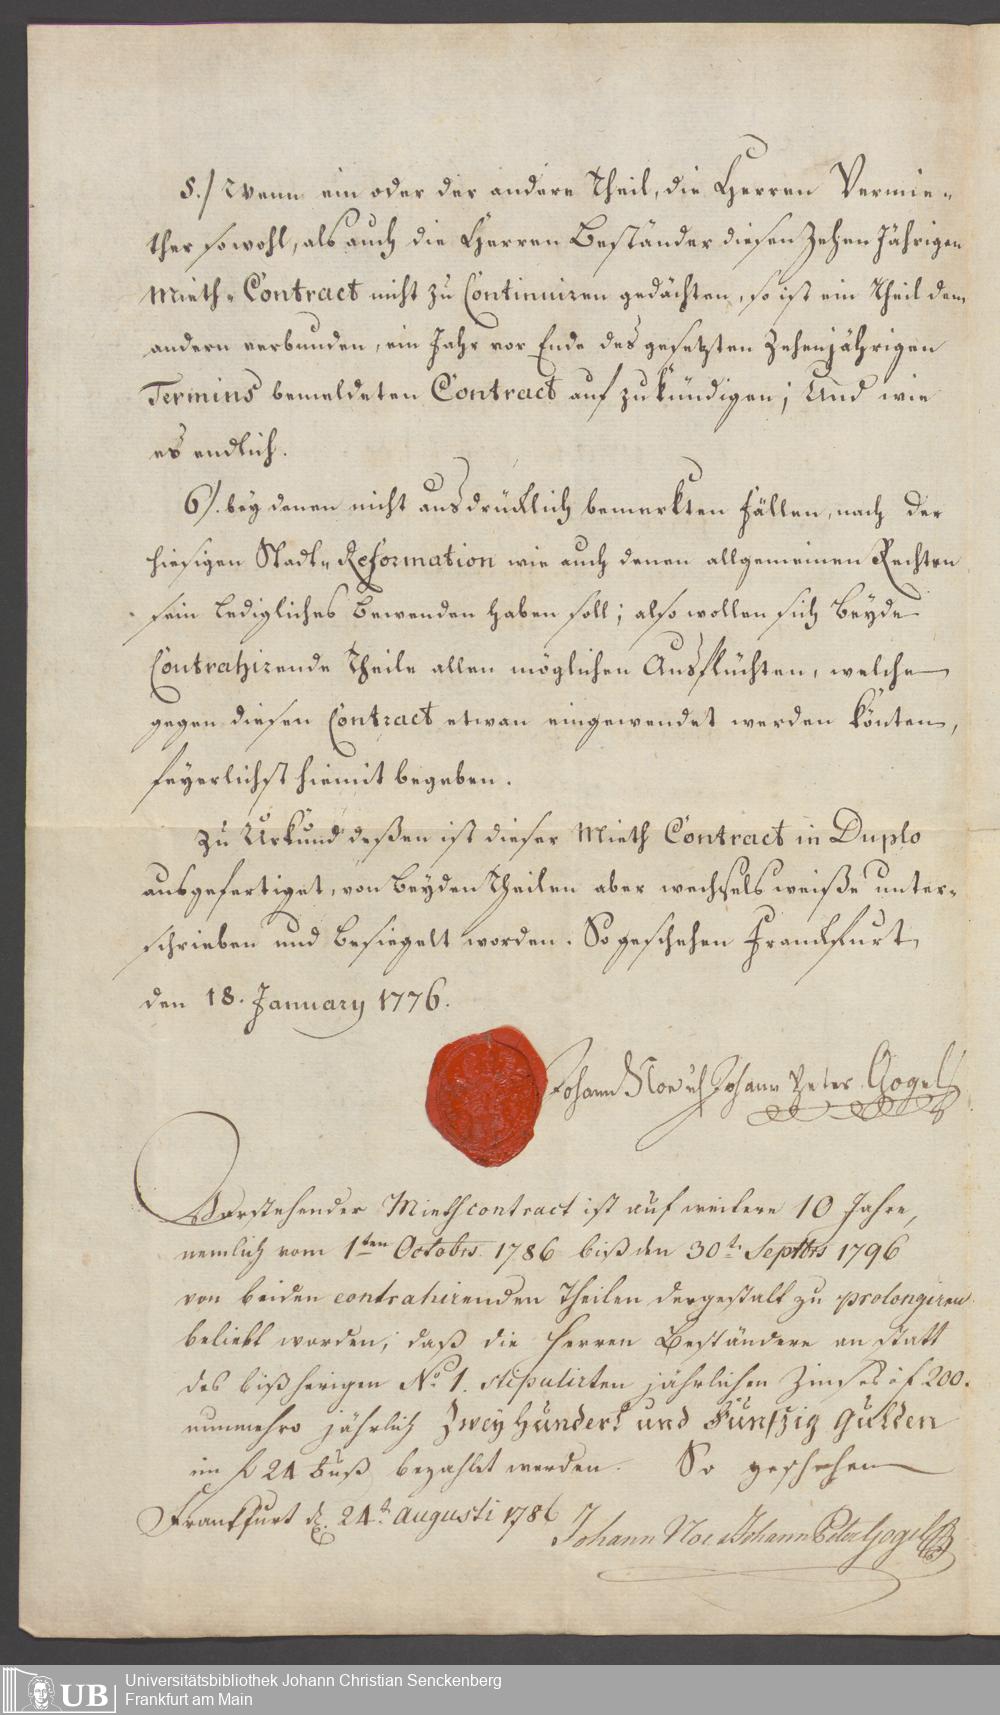 5./ Wenn ein oder der andere Theil, die Herren Vermie-
ther sowohl, als auch die Herren Beständer diesen Zehen Jährigen
Mieth-Contract nicht zu Continuiren gedächten, so ist ein Theil dem
andern verbunden, ein Jahr vor Ende des gesetzten Zehenjährigen
Termins bemeldeten Contract auf zu kündigen; Und wie
es endlich.
6). bey denen nicht ausdrücklich bemerkten Fällen, nach der
hiesigen Stadt-Reformation wie auch denen allgemeinen Rechten
sein ledigliches bewenden haben soll; also wollen sich Beyde
Contrahirende Theile allen möglichen Ausflüchten, welche
gegen diesen Contract etwan eingewendet werden könten,
feyerlichst hiemit begeben.
Zu Urkund deßen ist dieser Mieth Contract in Duplo
ausgefertiget, von Beyden Theilen aber wechselsweiße unter-
schrieben und besiegelt worden. So geschehen Franckfurt
den 18. January 1776.
Johann Noe & Johann Peter Gogel
Vorstehender Miethcontract ist auf weitere 10 Jahre,
nemlich vom 1ten Octobrs. 1786 biß den 30t. Septbrs 1796
von beiden contrahirenden Theilen dergestalt zu prolongiren
beliebt worden, daß die Herren Beständere an statt
des bißherigen No. 1. stipulirten jährlichen Zinses á f 200.
nunmehro jährlich Zwey Hundert und Fünfzig Gulden
im f 24 Fuß bezahlt werden. So geschehen
Frankfurt d. 24t. Augusti 1786
Johann Noe & Johann Peter Gogel
Universitätsbibliothek Johann Christian Senckenberg
Frankfurt am Main
UB